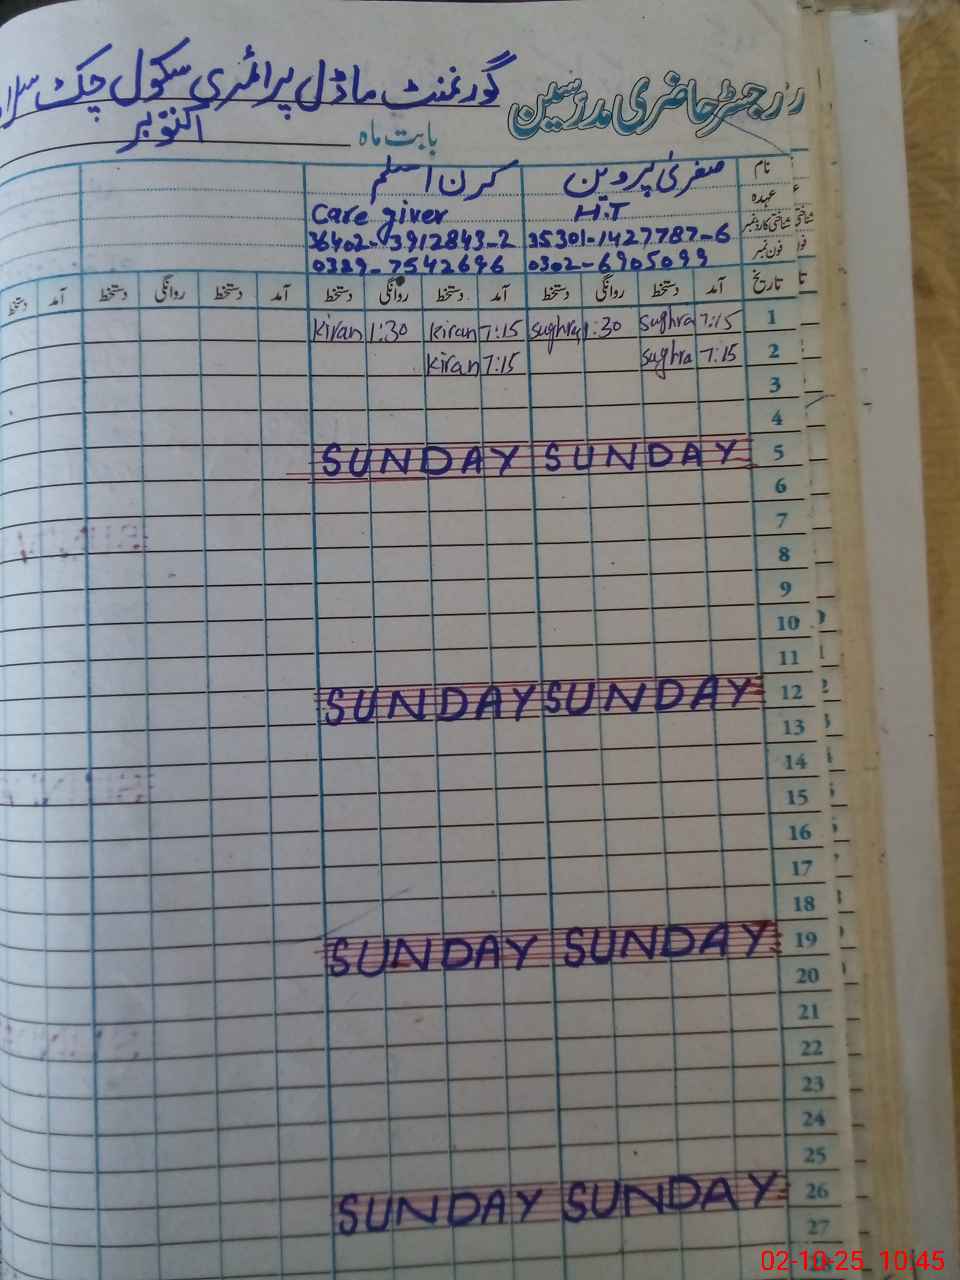 رجسٹر حاضری مدرسین گورنمنٹ ماڈل پرائمری سکول چک
بابت ماہ اکتوبر
نام صغریٰ پروین کرن اسلم
عہدہ H.T Care giver
شناختی کارڈ نمبر 35301-1427787-6 36402-3912843-2
فون نمبر 0302-6905099 0329-7542696
تاریخ آمد دستخط روانگی دستخط آمد دستخط روانگی دستخط آمد دستخط روانگی دستخط آمد دستخط
1 7:15 Sughra 1:30 sughra 7:15 kiran 1:30 kiran
2 7:15 sughra 7:15 kiran
3
4
5 SUNDAY SUNDAY
6
7
8
9
10
11
12 SUNDAY SUNDAY
13
14
15
16
17
18
19 SUNDAY SUNDAY
20
21
22
23
24
25
26 SUNDAY SUNDAY
27
02-10-25 10:45